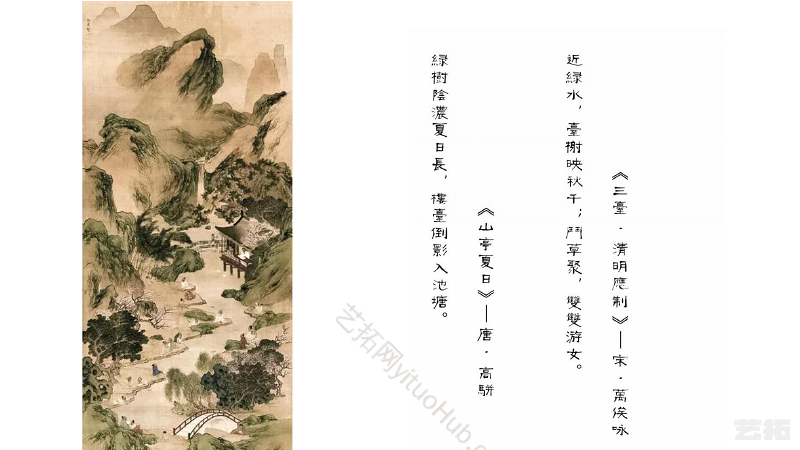 《三臺·清明應制》——宋·萬俟咏
近綠水，臺榭映秋千；鬥草聚，雙雙游女。
《山亭夏日》——唐·高駢
綠樹陰濃夏日長，樓臺倒影入池塘。
艺拓网yituoHub.c
艺拓